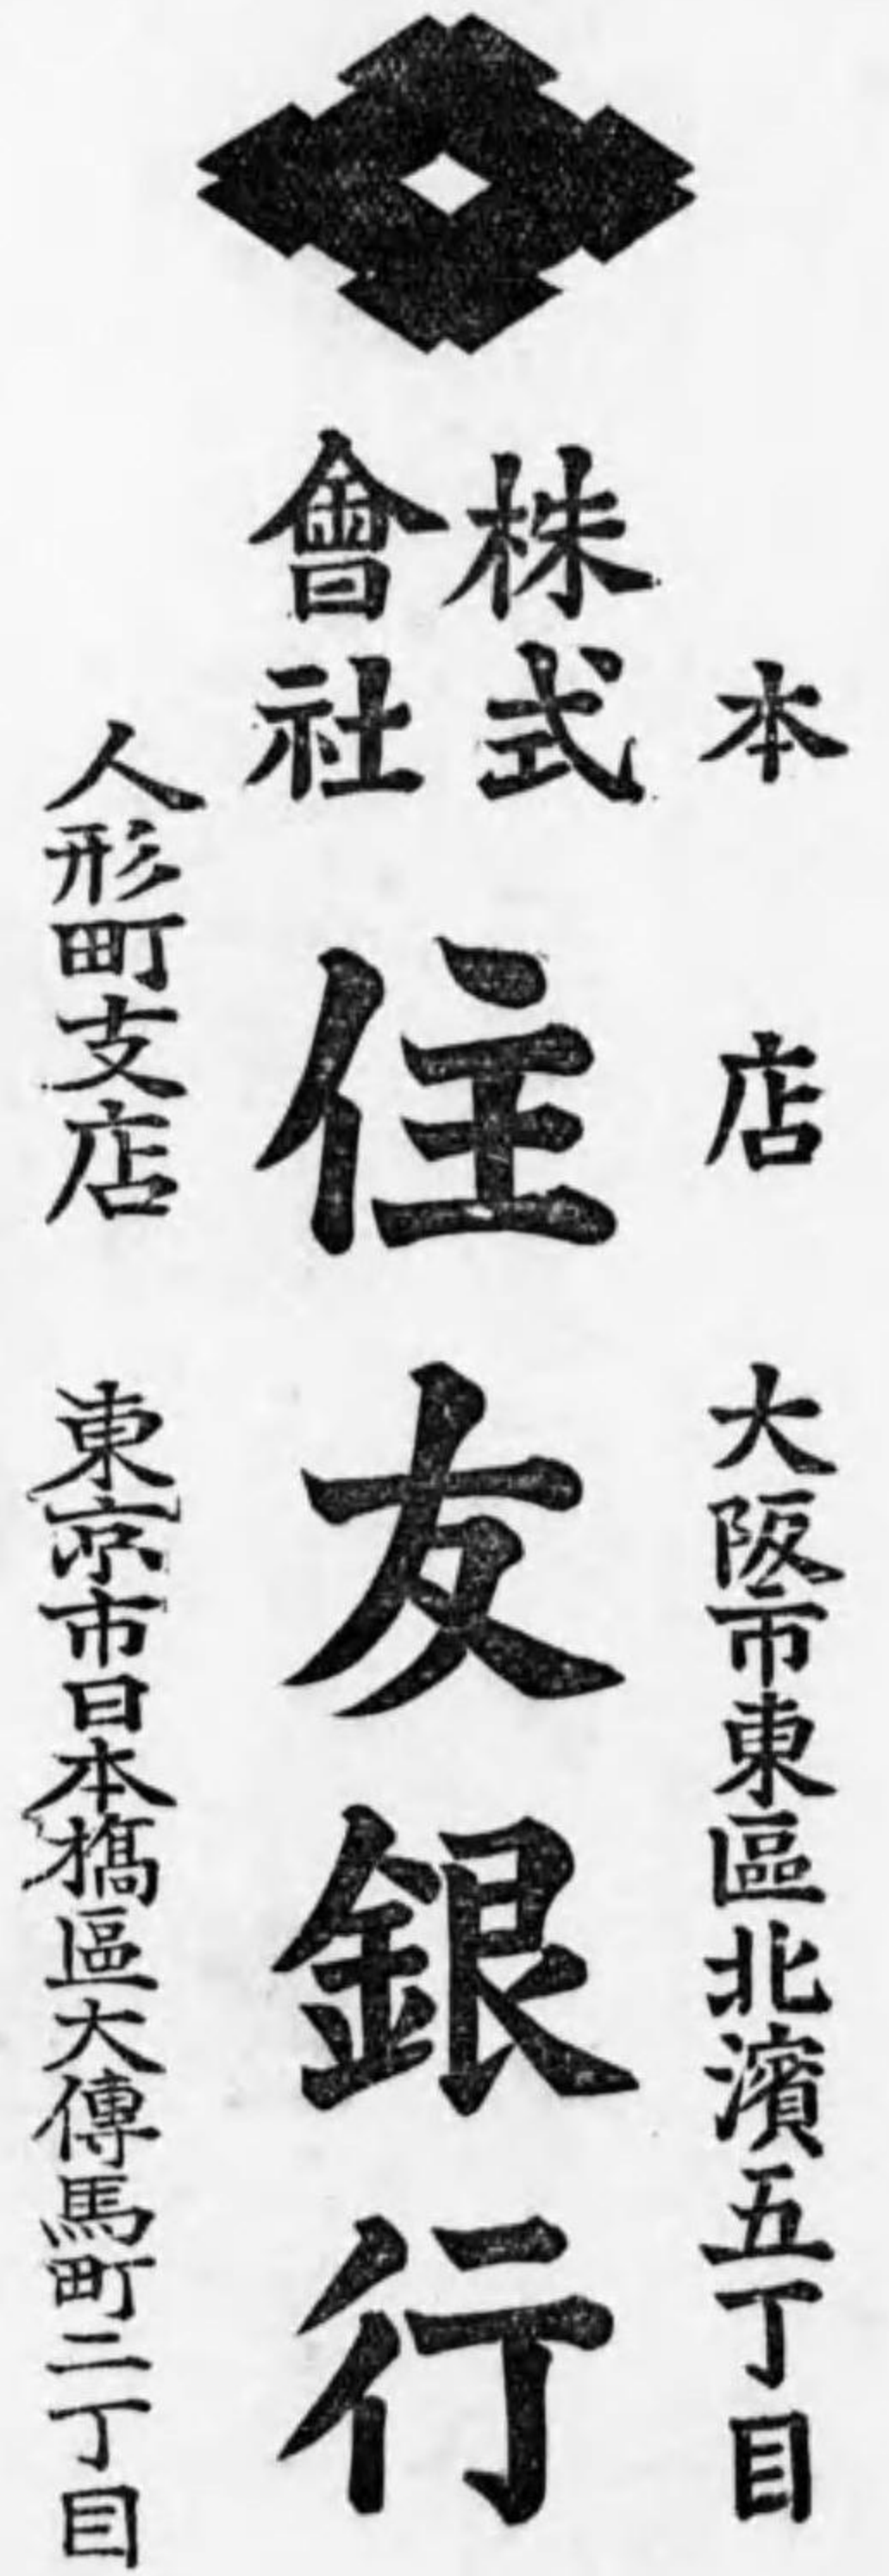 本店 大阪市東區北濱五丁目
株式
會社
住友銀行
人形町支店 東京市日本橋區大傳馬町二丁目